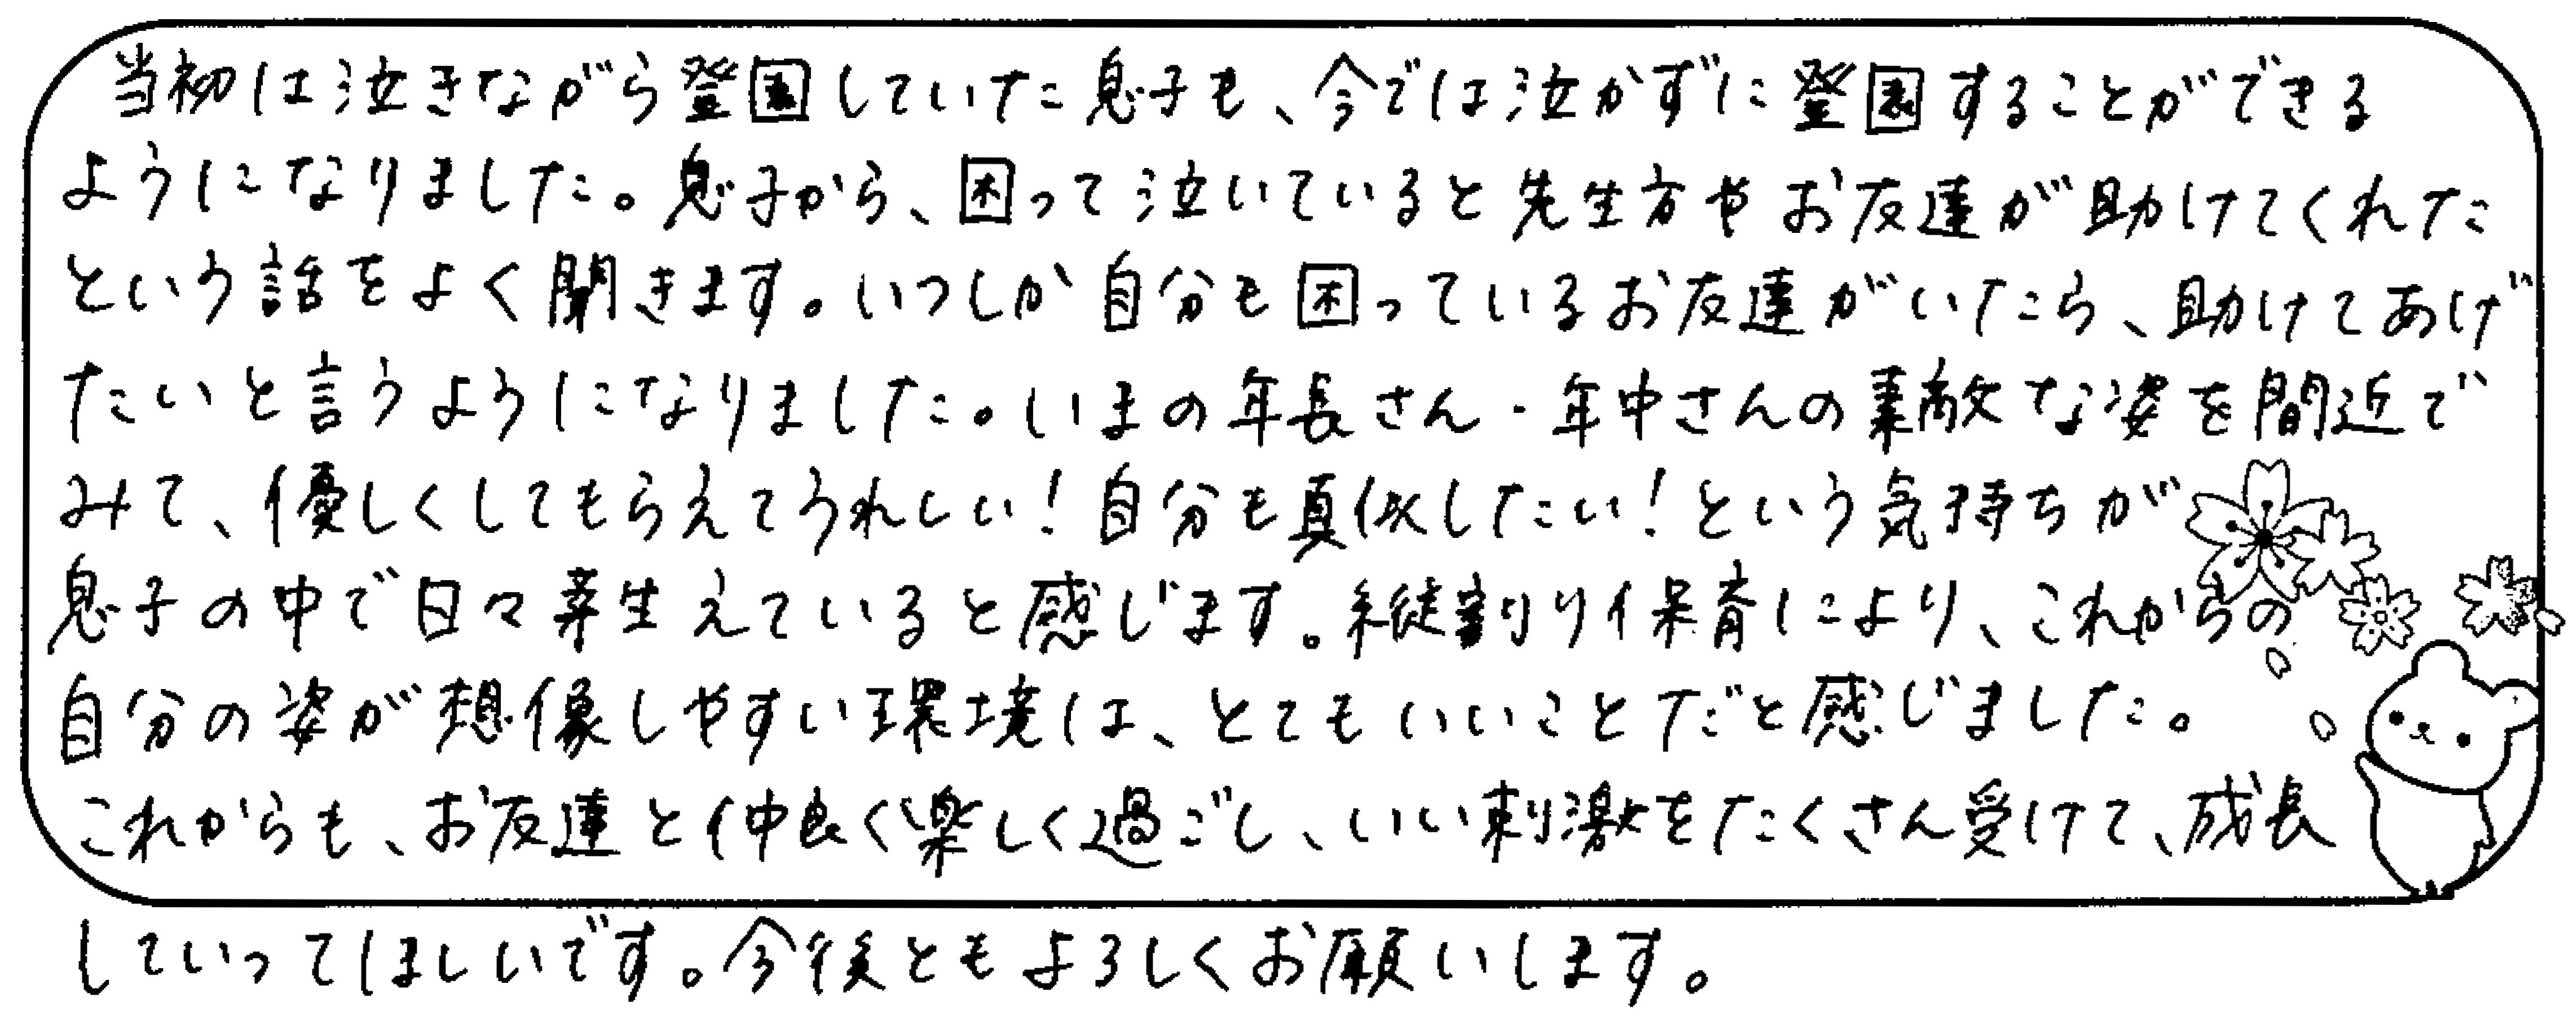 当初は泣きながら登園していた息子も、今では泣かずに登園することができる
ようになりました。息子から、困って泣いていると先生方やお友達が助けてくれた
という話をよく聞きます。いつしか自分も困っているお友達がいたら、助けてあげ
たいと言うようになりました。いまの年長さん・年中さんの素敵な姿を間近で
みて、優しくしてもらえてうれしい！自分も真似したい！という気持ちが
息子の中で日々芽生えていると感じます。縦割り保育により、これからの
自分の姿が想像しやすい環境は、とてもいいことだと感じました。
これからも、お友達と仲良く楽しく過ごし、いい刺激をたくさん受けて、成長
していってほしいです。今後ともよろしくお願いします。